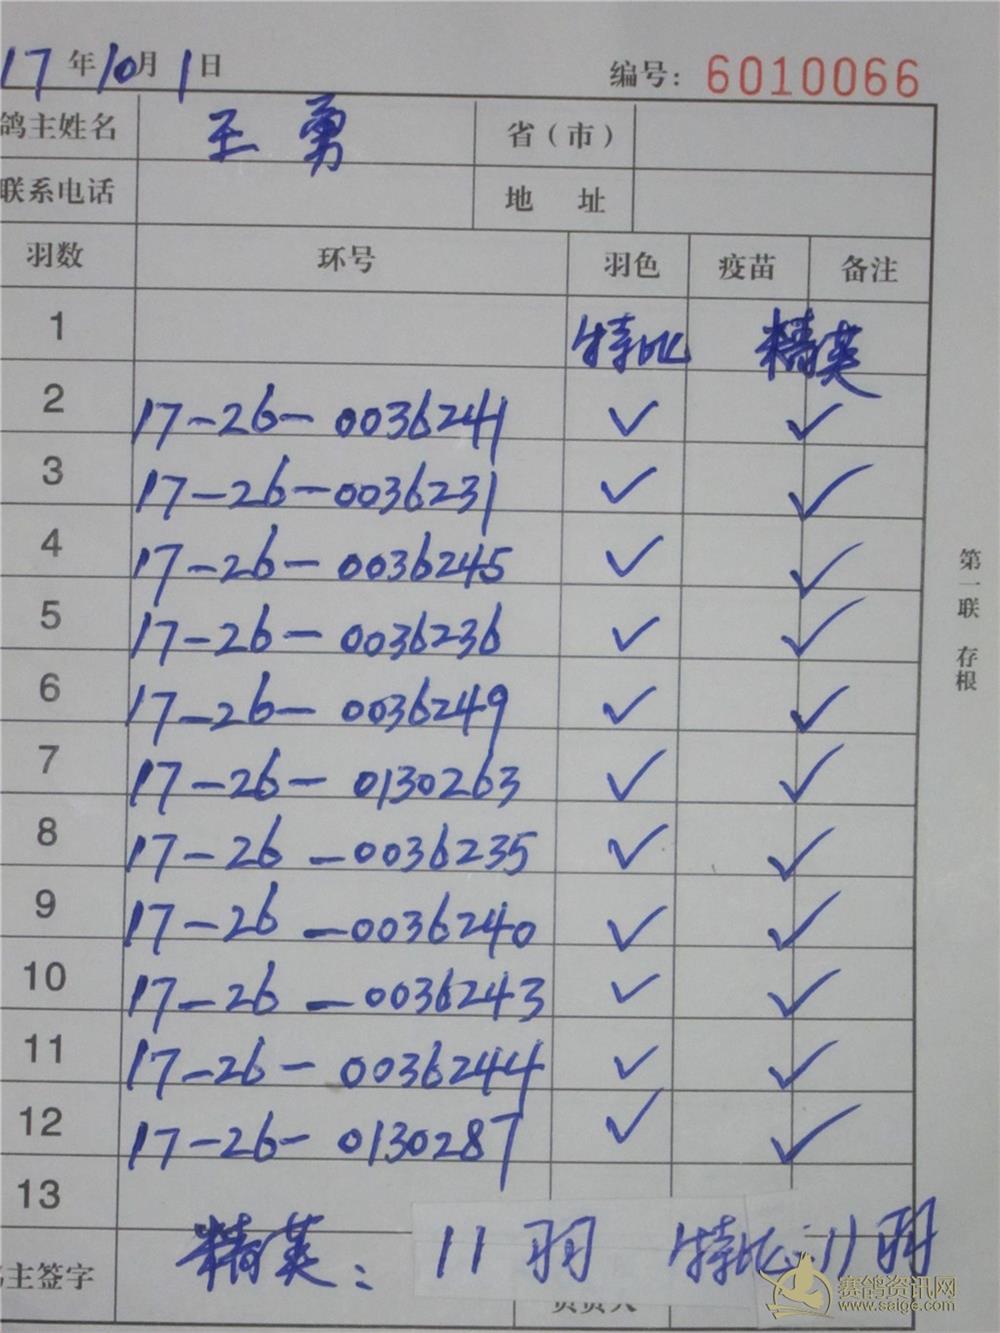 17年10月1日 编号：6010066
鸽主姓名 王勇 省（市）
联系电话 地 址
羽数 环号 羽色 疫苗 备注
1 特比 精英
2 17-26-0036241 ✓ ✓
3 17-26-0036231 ✓ ✓
4 17-26-0036245 ✓ ✓
5 17-26-0036236 ✓ ✓
6 17-26-0036249 ✓ ✓
7 17-26-0130263 ✓ ✓
8 17-26-0036235 ✓ ✓
9 17-26-0036240 ✓ ✓
10 17-26-0036243 ✓ ✓
11 17-26-0036244 ✓ ✓
12 17-26-0130287 ✓ ✓
13
精英：11羽 特比：11羽
主签字 负责人
第一联 存根
赛鸽资讯网
www.saige.com